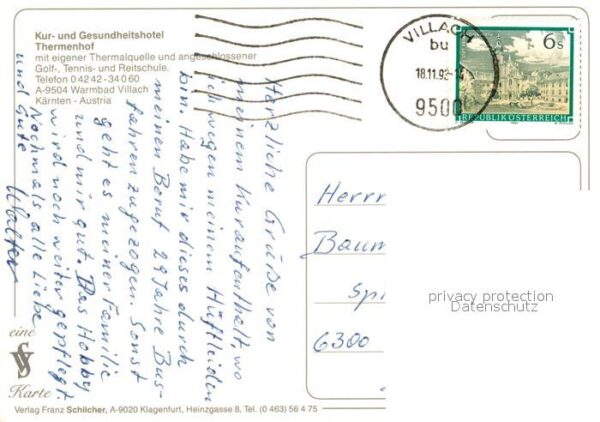 Kur- und Gesundheitshotel
Thermenhof
mit eigener Thermalquelle und angeschlossener
Golf-, Tennis- und Reitschule.
Telefon 0 42 42 - 34 0 60
A-9504 Warmbad Villach
Kärnten - Austria
VILLACH
bu
18.11.92-14
9500
6 S
REPUBLIK ÖSTERREICH
Herzliche Grüße von
meinem Kuraufenthalt, wo
ich wegen meinem Hüftleiden
bin. Habe mir dieses durch
meinen Beruf 29 Jahre Bus-
fahren zugezogen. Sonst
geht es meiner Familie
und mir gut. Das Hobby
wird noch weiter gepflegt.
Nochmals alle Liebe
und Gute
Walter
Herrn
Baum
Spi
6300
privacy protection
Datenschutz
eine
VS
Karte
Verlag Franz Schilcher, A-9020 Klagenfurt, Heinzgasse 8, Tel. (0 463) 56 4 75